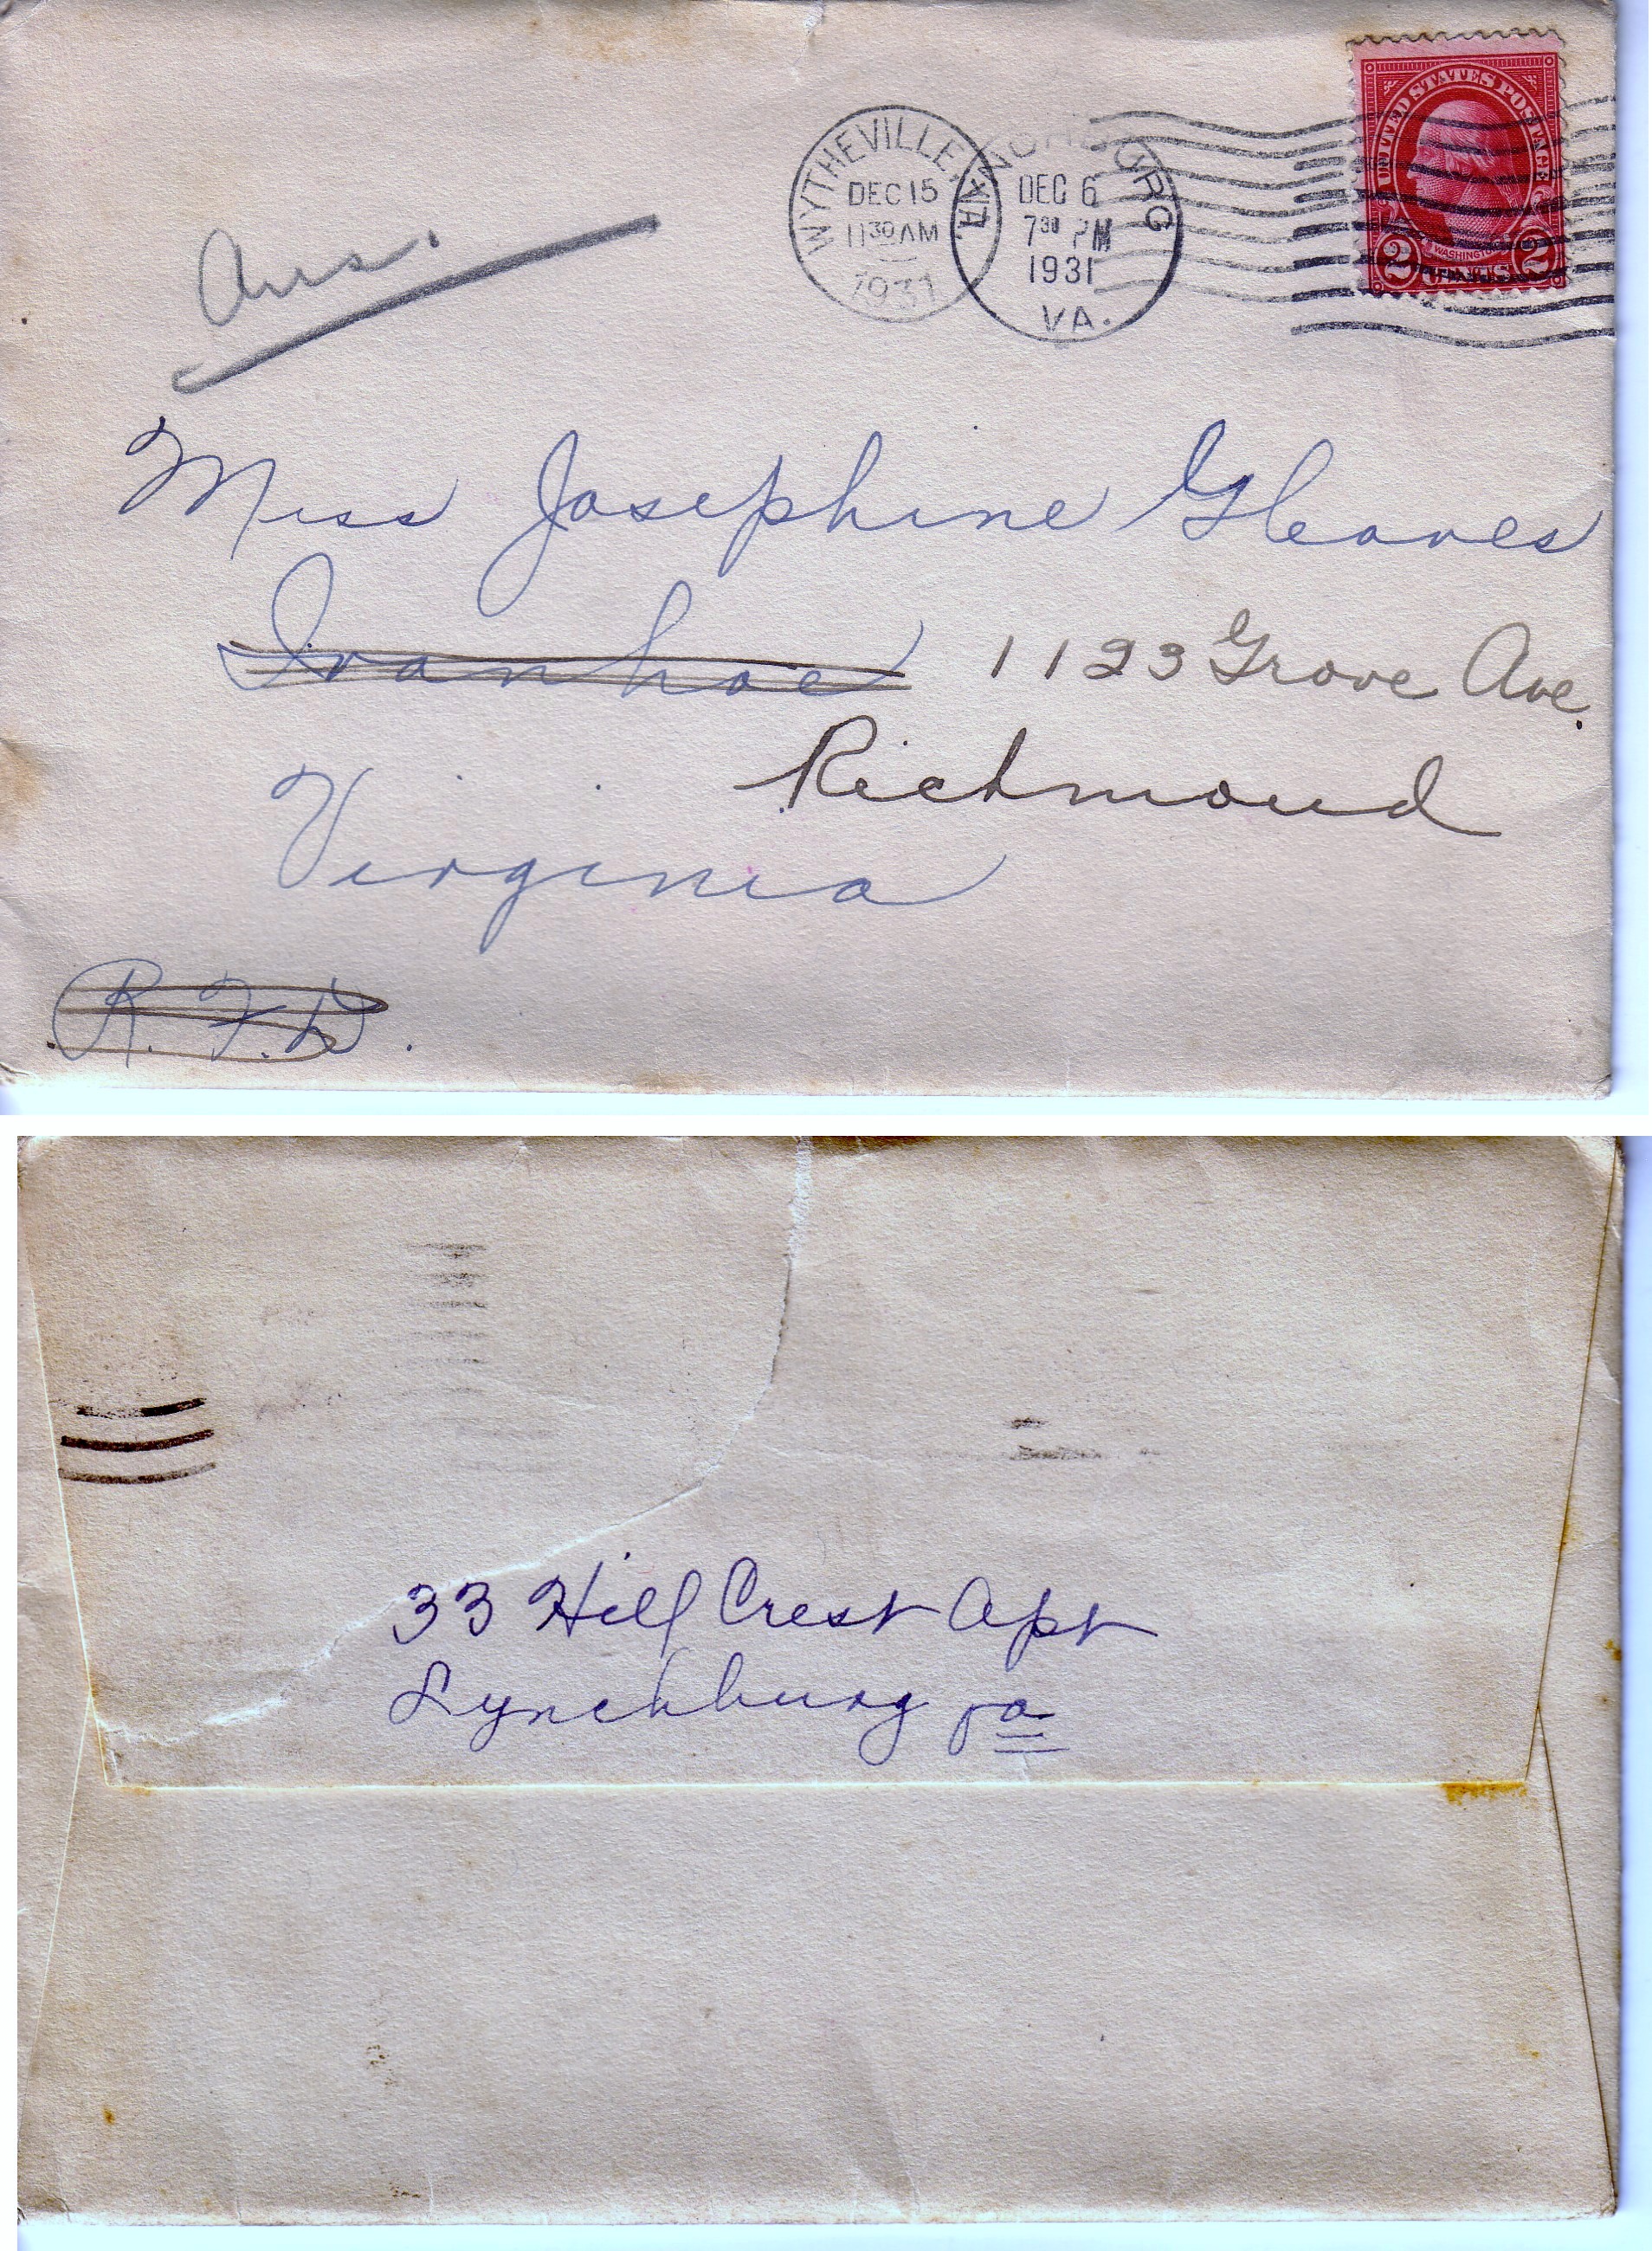 UNITED STATES POSTAGE
WASHINGTON
2 CENTS 2
WYTHEVILLE, VA.
DEC 15
11 30 AM
1931
DEC 6
7 30 PM
1931
VA.
Ans.
Miss Josephine Gleaves
Ivanhoe 1123 Grove Ave.
Richmond
Virginia
R. F. D.
33 Hill Crest Apt
Lynchburg Va